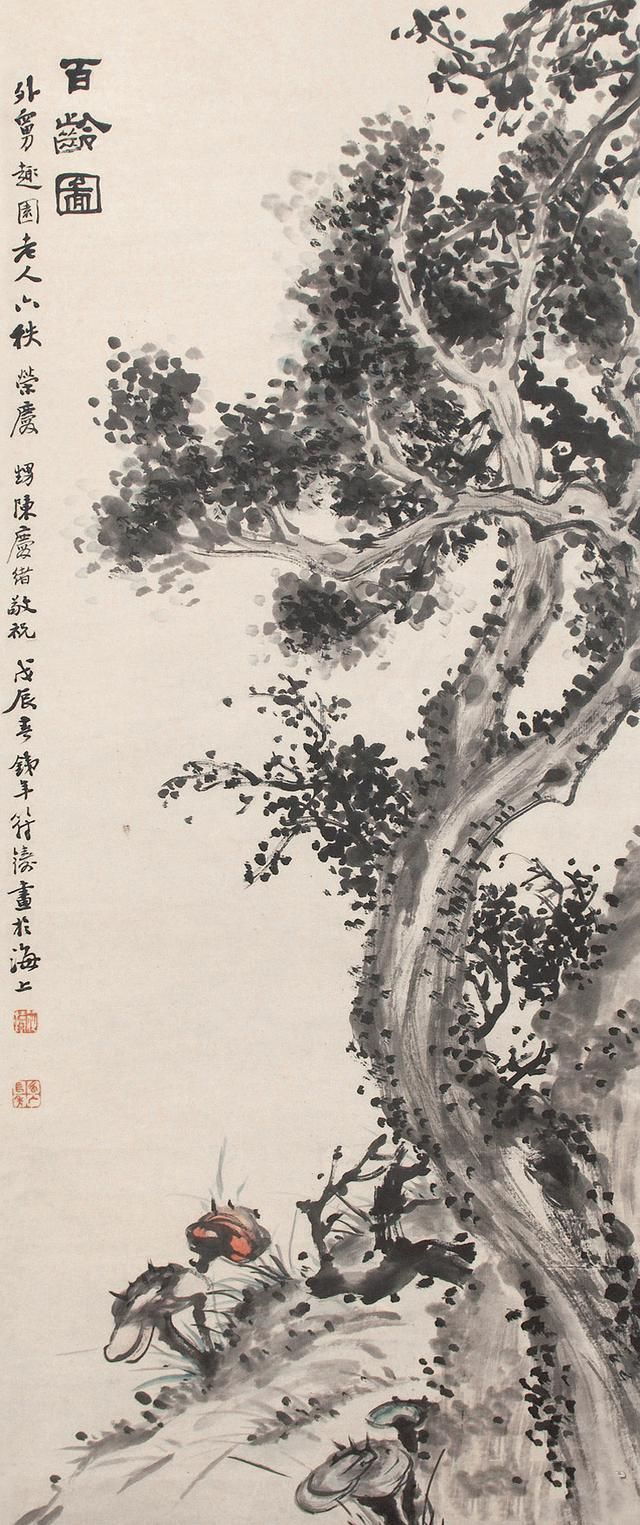 百齡圖
外舅趣園老人六秩榮慶 甥陳慶緒敬祝 戊辰春 錢年符鑄畫於海上